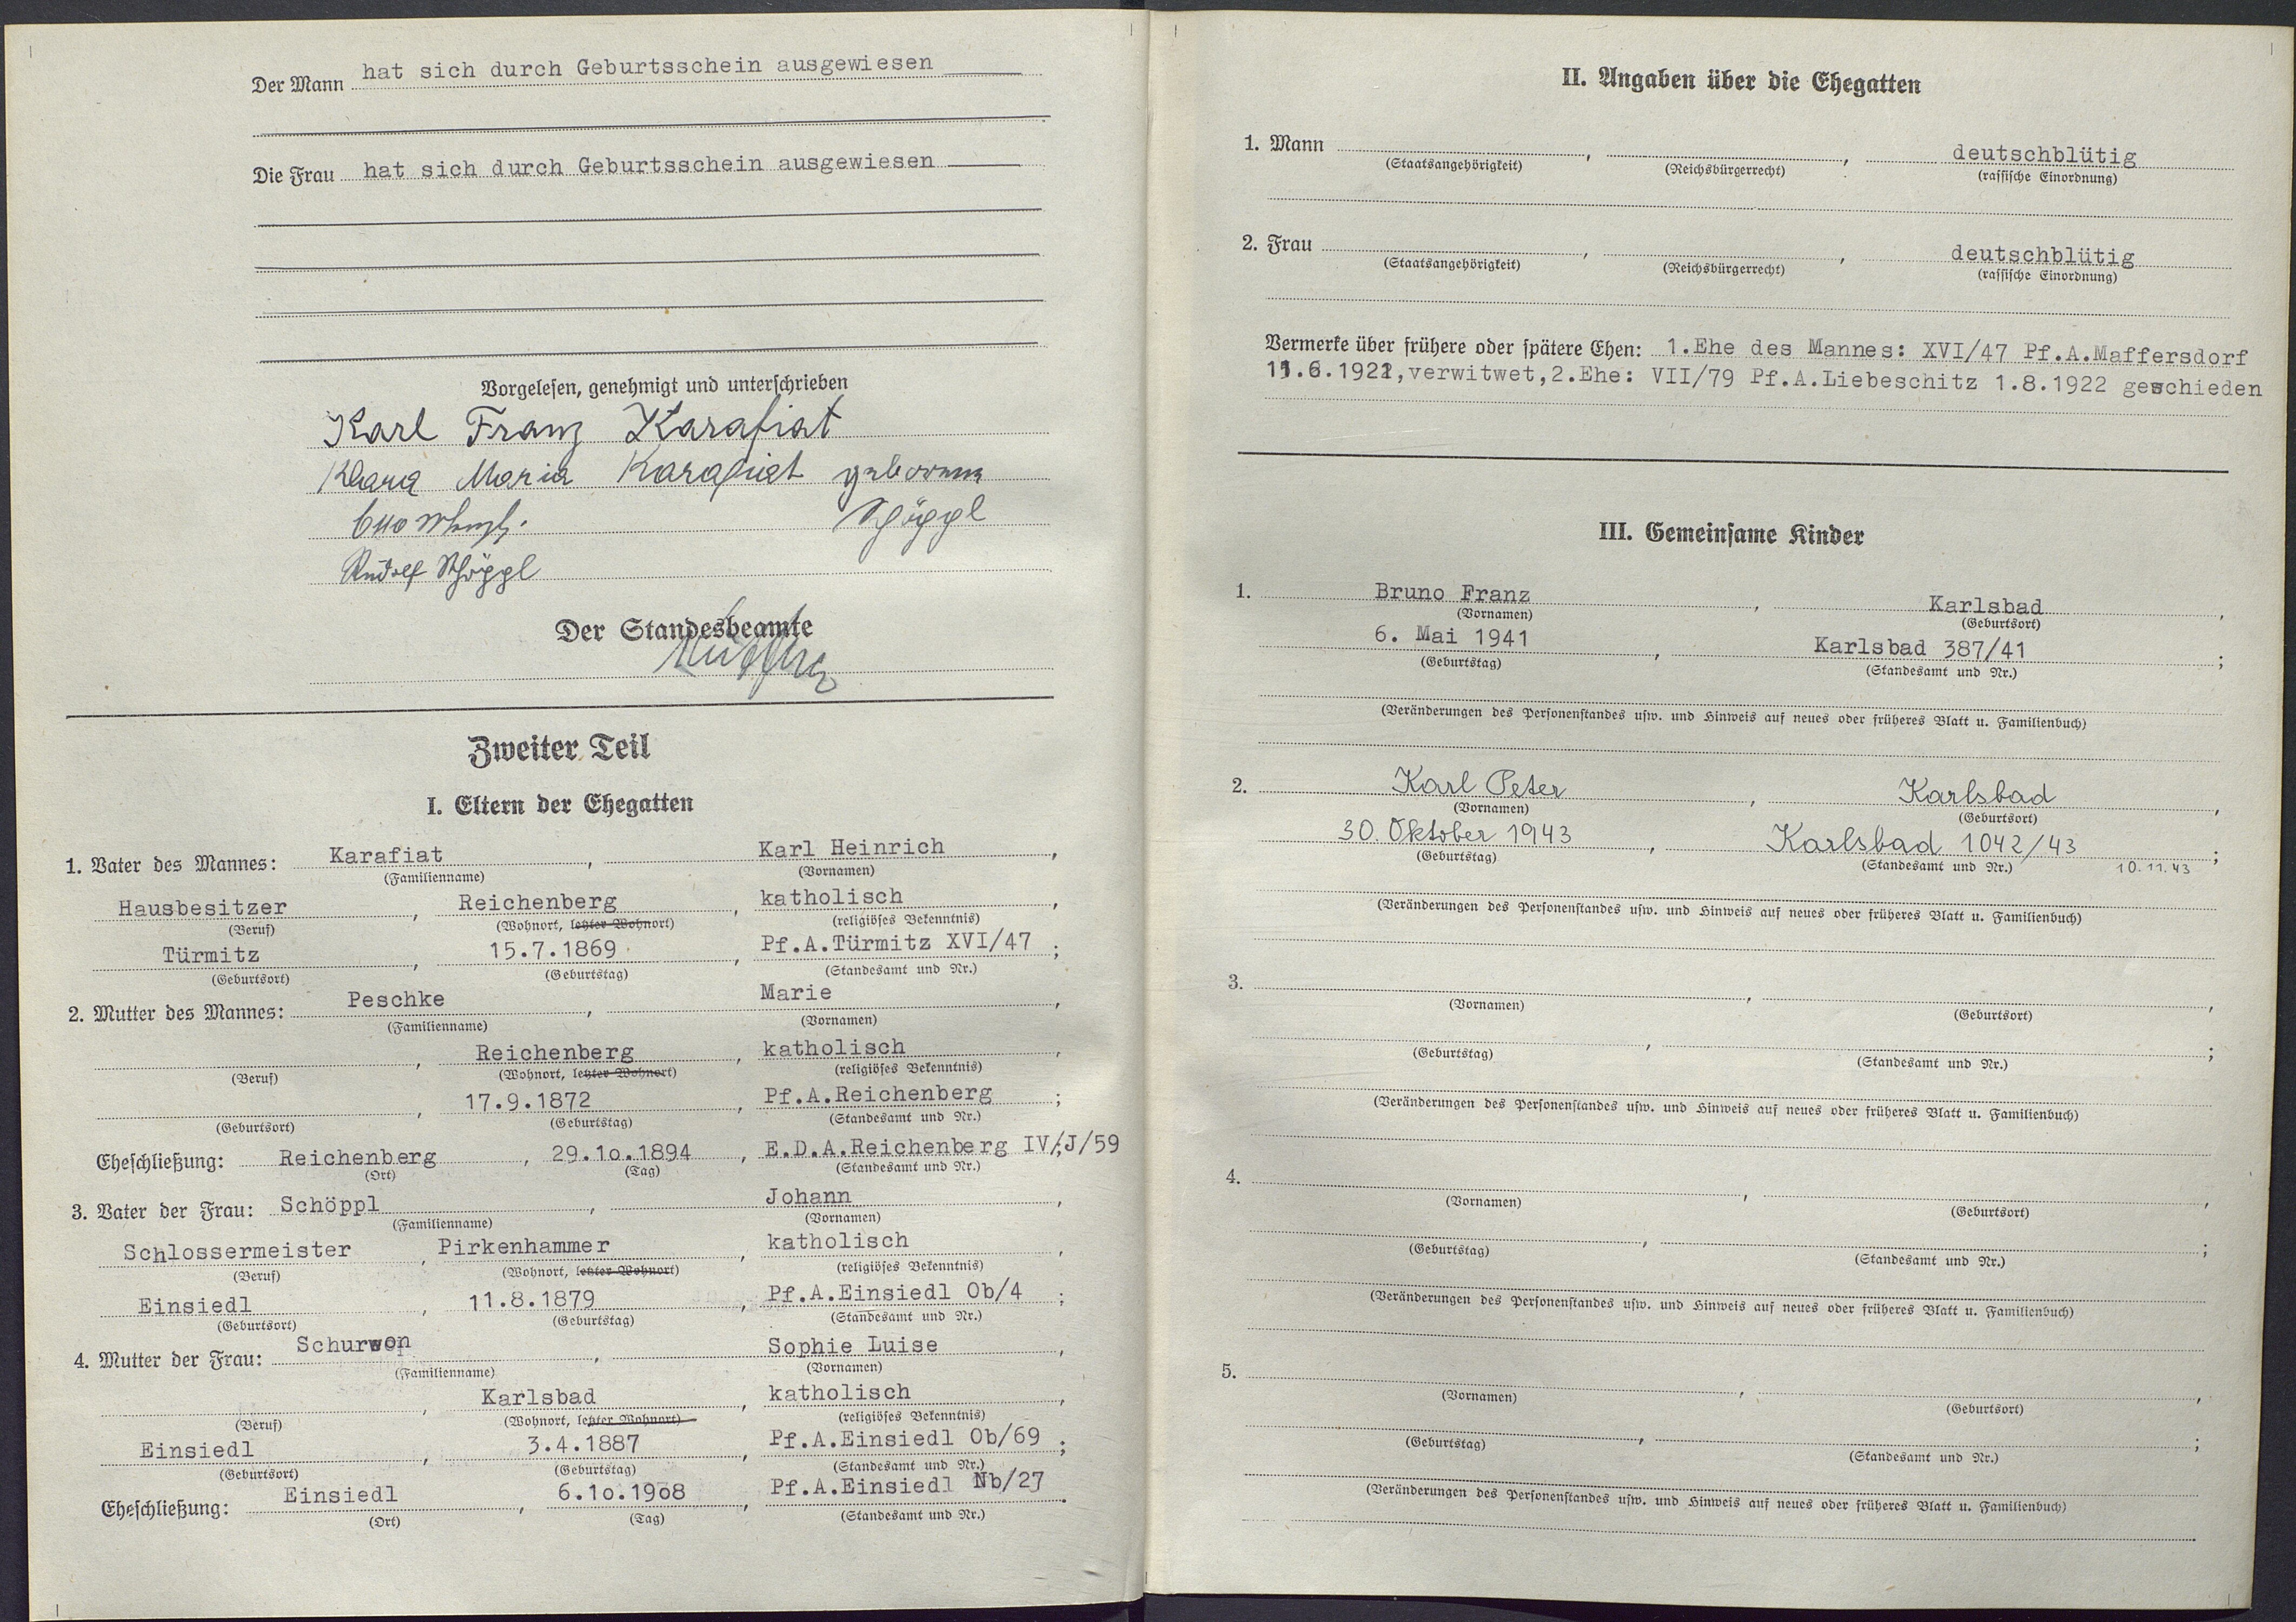 Der Mann hat sich durch Geburtsschein ausgewiesen
Die Frau hat sich durch Geburtsschein ausgewiesen
Vorgelesen, genehmigt und unterschrieben
Karl Franz Karafiat
Klara Maria Karafiat geborene
Schöppl
Otto
Rudolf Schöppl
Der Standesbeamte
Zweiter Teil
I. Eltern der Ehegatten
1. Vater des Mannes: Karafiat, Karl Heinrich,
(Familienname) (Vornamen)
Hausbesitzer, Reichenberg, katholisch,
(Beruf) (Wohnort, letzter Wohnort) (religiöses Bekenntnis)
Türmitz, 15.7.1869, Pf.A.Türmitz XVI/47;
(Geburtsort) (Geburtstag) (Standesamt und Nr.)
2. Mutter des Mannes: Peschke, Marie,
(Familienname) (Vornamen)
, Reichenberg, katholisch,
(Beruf) (Wohnort, letzter Wohnort) (religiöses Bekenntnis)
, 17.9.1872, Pf.A.Reichenberg;
(Geburtsort) (Geburtstag) (Standesamt und Nr.)
Eheschließung: Reichenberg, 29.10.1894, E.D.A.Reichenberg IV/J/59;
(Ort) (Tag) (Standesamt und Nr.)
3. Vater der Frau: Schöppl, Johann,
(Familienname) (Vornamen)
Schlossermeister, Pirkenhammer, katholisch,
(Beruf) (Wohnort, letzter Wohnort) (religiöses Bekenntnis)
Einsiedl, 11.8.1879, Pf.A.Einsiedl Ob/4;
(Geburtsort) (Geburtstag) (Standesamt und Nr.)
4. Mutter der Frau: Schurwon, Sophie Luise,
(Familienname) (Vornamen)
, Karlsbad, katholisch,
(Beruf) (Wohnort, letzter Wohnort) (religiöses Bekenntnis)
Einsiedl, 3.4.1887, Pf.A.Einsiedl Ob/69;
(Geburtsort) (Geburtstag) (Standesamt und Nr.)
Eheschließung: Einsiedl, 6.10.1908, Pf.A.Einsiedl Nb/27.
(Ort) (Tag) (Standesamt und Nr.)
II. Angaben über die Ehegatten
1. Mann , , deutschblütig
(Staatsangehörigkeit) (Reichsbürgerrecht) (rassische Einordnung)
2. Frau , , deutschblütig
(Staatsangehörigkeit) (Reichsbürgerrecht) (rassische Einordnung)
Vermerke über frühere oder spätere Ehen: 1.Ehe des Mannes: XVI/47 Pf.A.Maffersdorf
11.6.1921,verwitwet,2.Ehe: VII/79 Pf.A.Liebeschitz 1.8.1922 geschieden
III. Gemeinsame Kinder
1. Bruno Franz, Karlsbad,
(Vornamen) (Geburtsort)
6. Mai 1941, Karlsbad 387/41;
(Geburtstag) (Standesamt und Nr.)
(Veränderungen des Personenstandes usw. und Hinweis auf neues oder früheres Blatt u. Familienbuch)
2. Karl Peter, Karlsbad,
(Vornamen) (Geburtsort)
30. Oktober 1943, Karlsbad 1042/43;
(Geburtstag) (Standesamt und Nr.) 10.11.43
(Veränderungen des Personenstandes usw. und Hinweis auf neues oder früheres Blatt u. Familienbuch)
3. , ,
(Vornamen) (Geburtsort)
, ;
(Geburtstag) (Standesamt und Nr.)
(Veränderungen des Personenstandes usw. und Hinweis auf neues oder früheres Blatt u. Familienbuch)
4. , ,
(Vornamen) (Geburtsort)
, ;
(Geburtstag) (Standesamt und Nr.)
(Veränderungen des Personenstandes usw. und Hinweis auf neues oder früheres Blatt u. Familienbuch)
5. , ,
(Vornamen) (Geburtsort)
, ;
(Geburtstag) (Standesamt und Nr.)
(Veränderungen des Personenstandes usw. und Hinweis auf neues oder früheres Blatt u. Familienbuch)